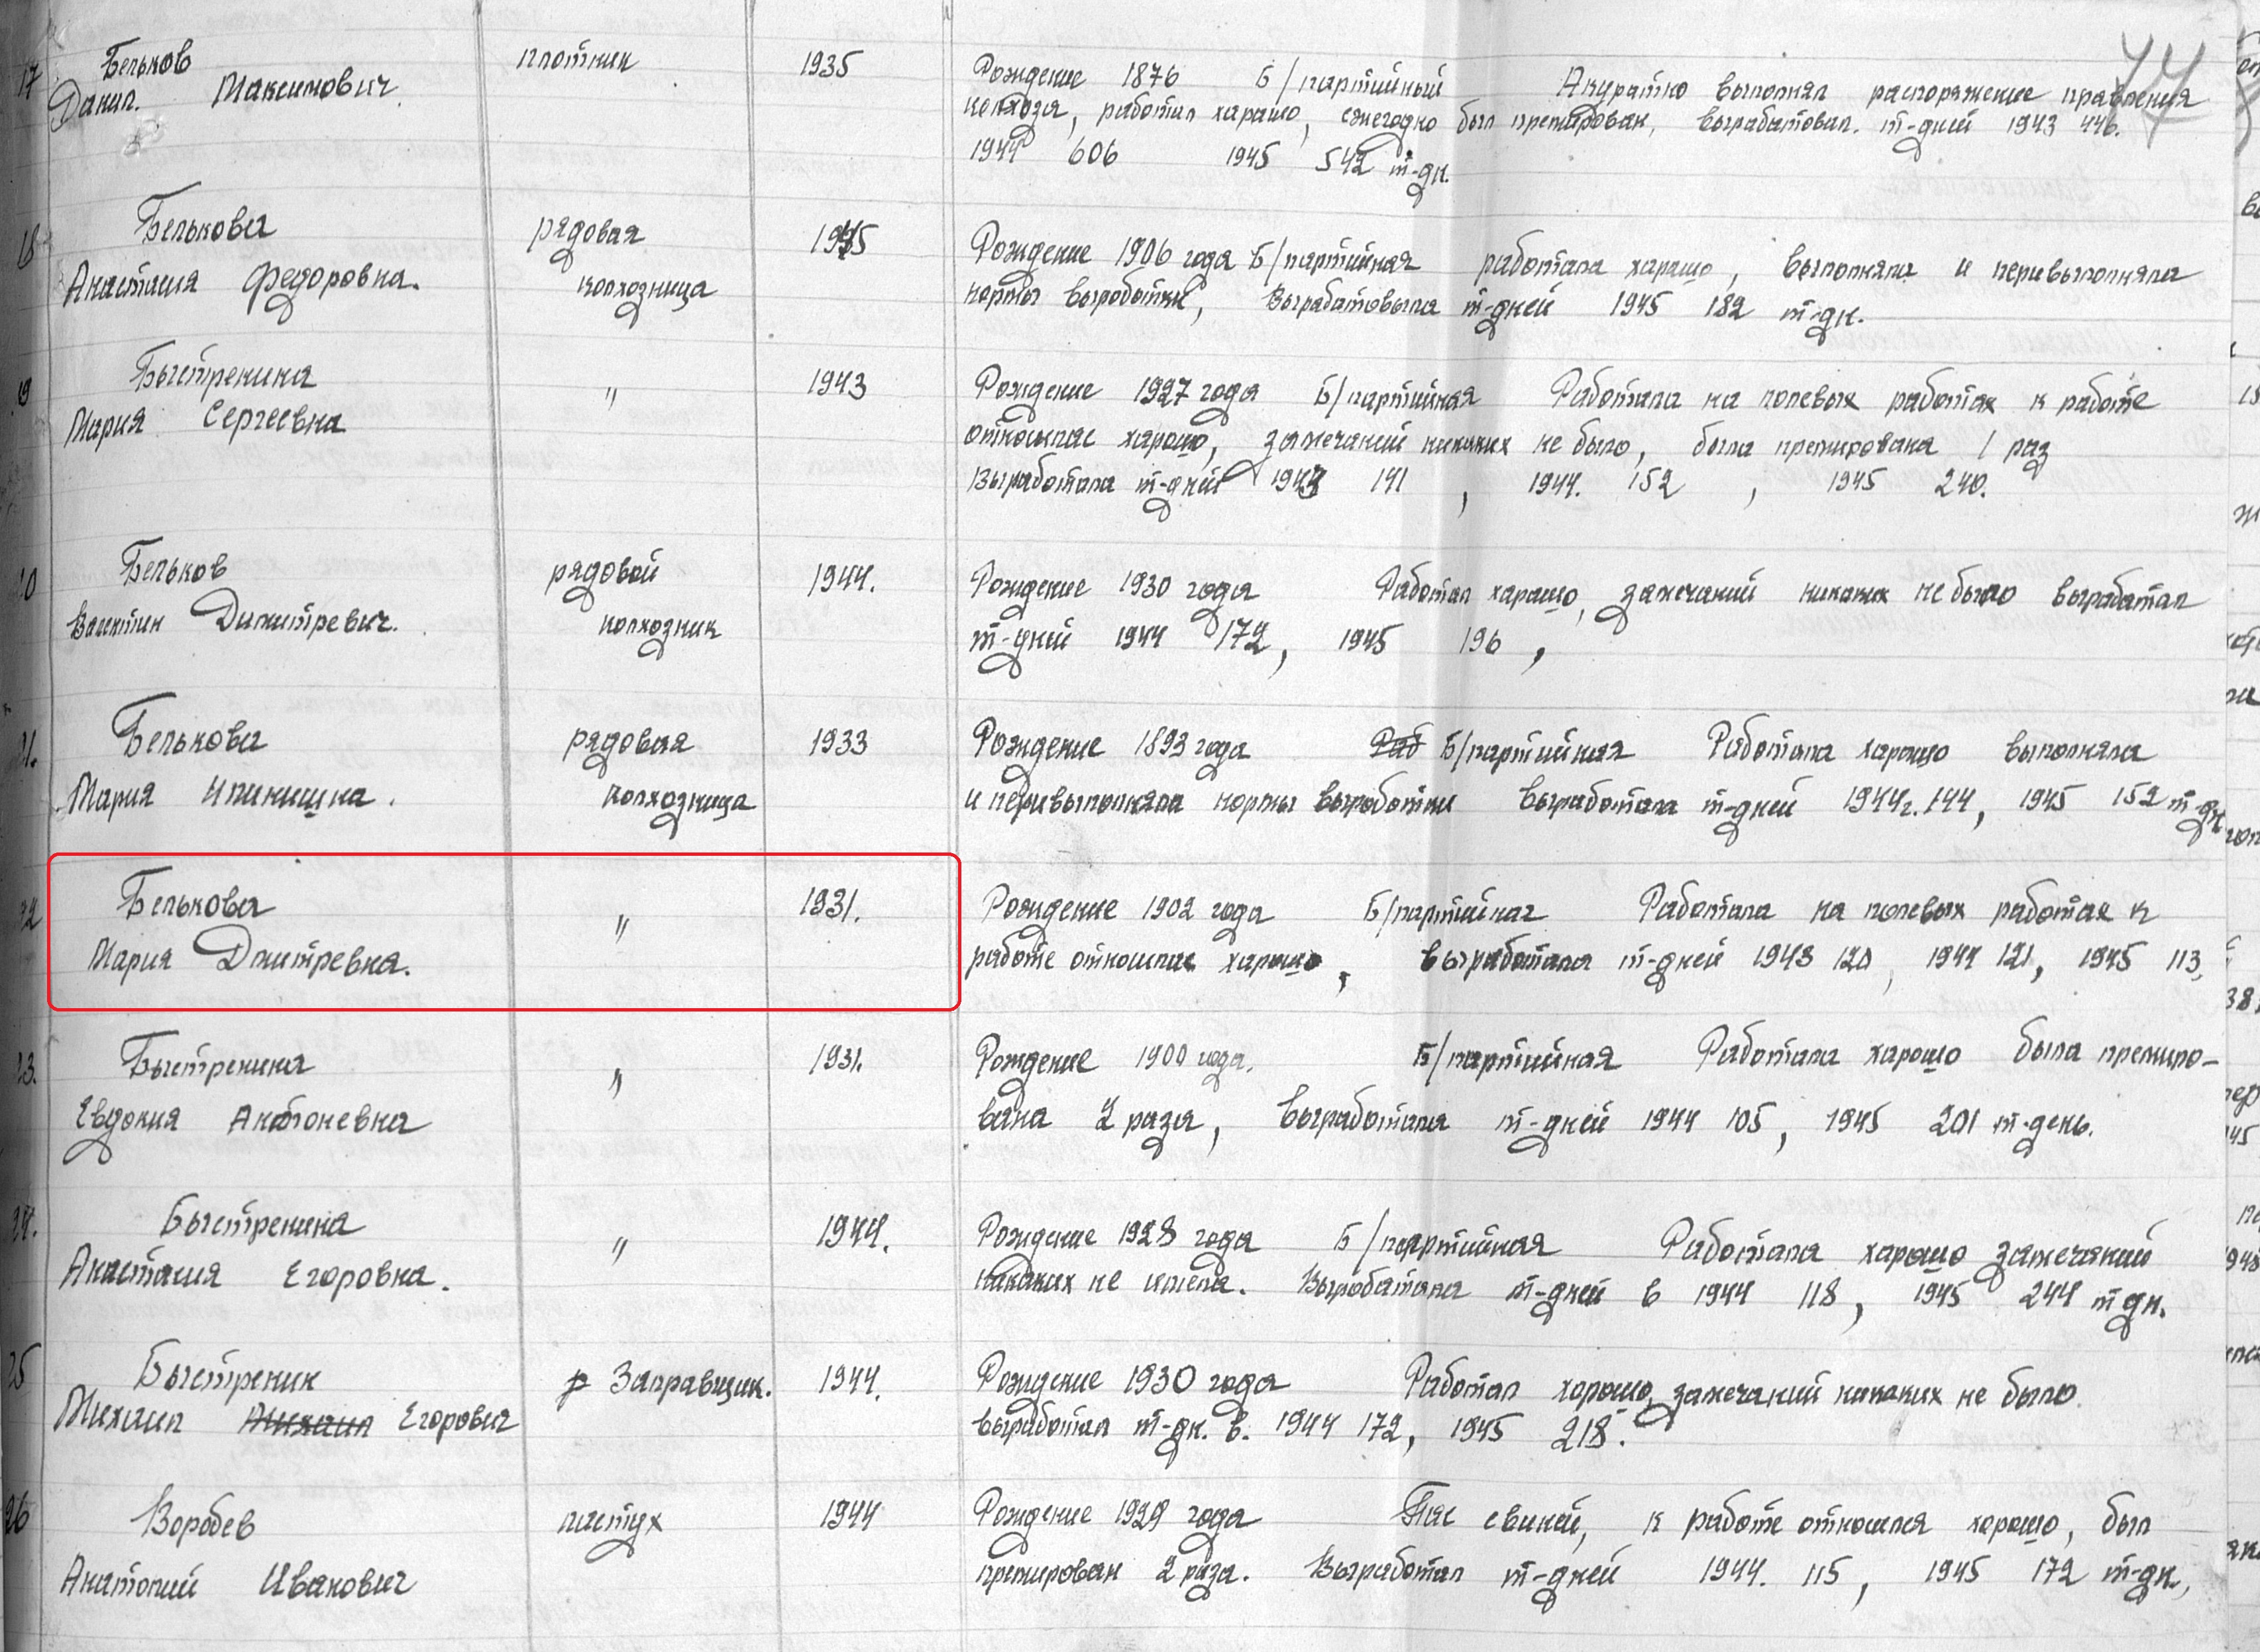 77
17 Бельков плотник 1935 Рождение 1876 Б/партийный Акуратно выполнял распоряжение правления
Данил. Максимович. колхоза, работал харашо, ежегодно был премирован, вырабатовал. т-дней 1943 446.
1944 606 1945 542 т-дн.
18 Белькова рядовая 1945 Рождение 1906 года Б/партийная работала харашо, выполняла и перивыполняла
Анастасия Федоровна. колхозница нормы выработки, Вырабатовыла т-дней 1945 182 т-дн.
19 Быстренина " 1943 Рождение 1927 года Б/партийная Работала на полевых работах к работе
Мария Сергеевна относилас харашо, замечаний никаких не было, была премирована 1 раз
Выработала т-дней 1943 141, 1944. 152, 1945 240.
20 Бельков рядовой 1944. Рождение 1930 года Работал харашо, замечаний никаких не было выработал
Валентин Димитревич. колхозник т-дней 1944 172, 1945 196,
21. Белькова рядовая 1933 Рождение 1893 года Раб Б/партийная Работала харашо выполняла
Мария Илинишна. колхозница и перивыполняла нормы выработки выработала т-дней 1944г. 144, 1945 152 т-дн
22 Белькова " 1931. Рождение 1902 года Б/партийная Работала на полевых работах к
Мария Дмитревна. работе относилас харашо, выработала т-дней 1943 120, 1944 121, 1945 113,
23. Быстренина " 1931. Рождение 1900 года. Б/партийная Работала харошо была премиро-
Евдокия Антоневна вана 2 раза, выработала т-дней 1944 105, 1945 201 т-день.
24. Быстренина " 1944. Рождение 1928 года Б/партийная Работала харошо замечаний
Анастасия Егоровна. никаких не имела. Выработала т-дней в 1944 118, 1945 244 т дн.
25 Быстренин р Заправщик. 1944. Рождение 1930 года Работал хорошо, замечаний никаких не было.
Михаил Михаил Егорович выработал т-дн. в. 1944 172, 1945 218.
26 Воробев пастух 1944 Рождение 1929 года Пас свиней, к работе относился хорошо, был
Анатолий Иванович премирован 2 раза. Выработал т-дней 1944. 115, 1945 172 т-дн.,